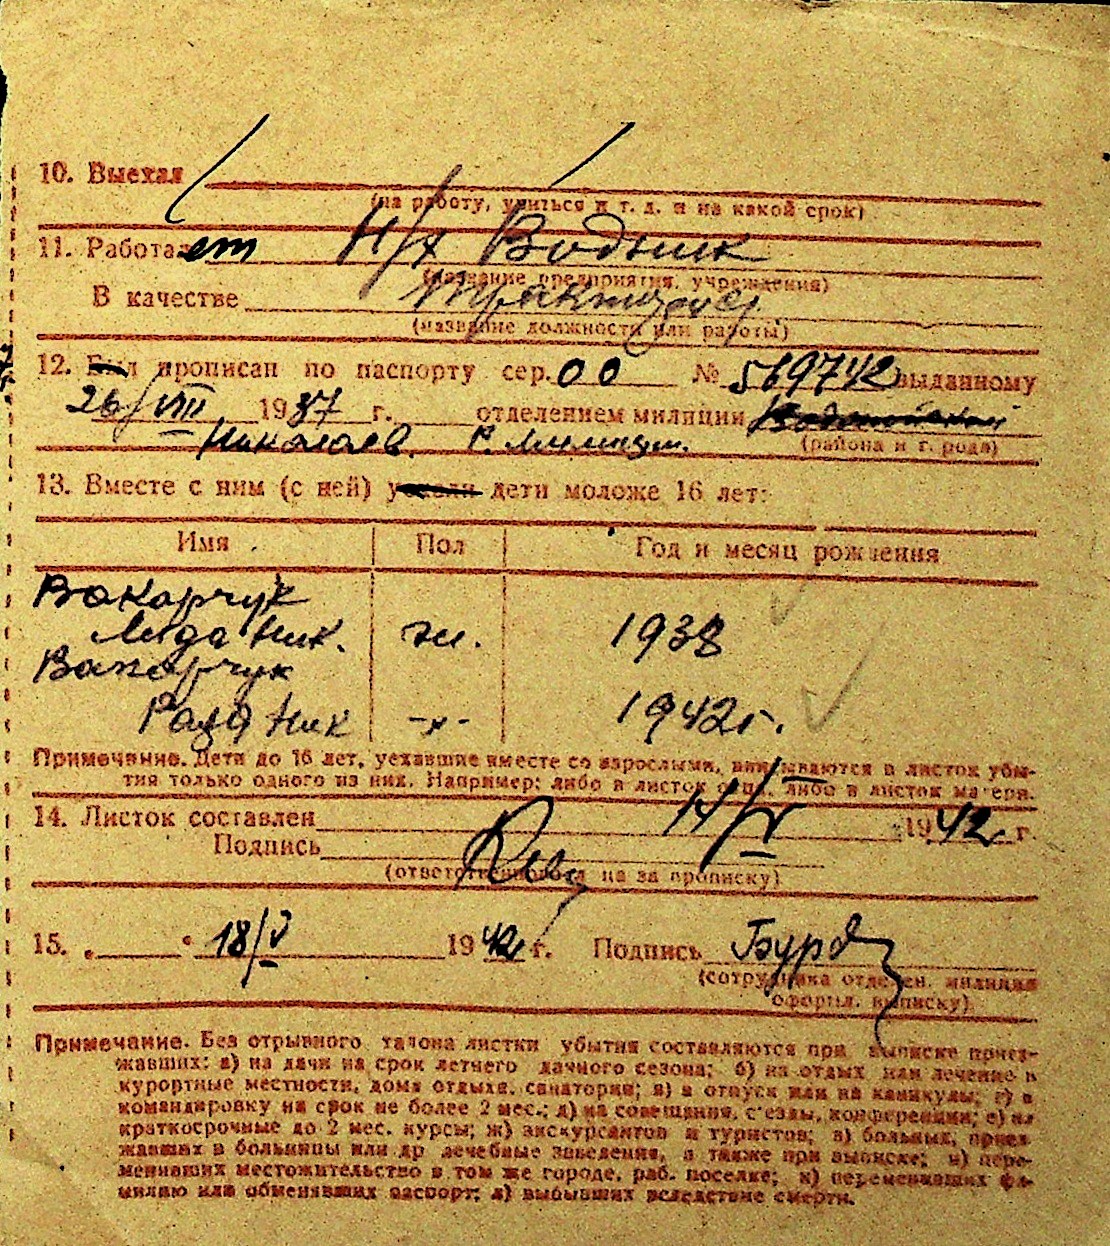 10. Выехал
(на работу, учиться и т. д. и на какой срок)
11. Работает Н/х Водник
(название предприятия, учреждения)
В качестве
(название должности или работы)
12. Был прописан по паспорту сер. 00 № 569742 выданному
26/VIII 1937 г. отделением милиции
Николаев. Р. (района и города)
13. Вместе с ним (с ней) уехали дети моложе 16 лет:
Имя Пол Год и месяц рождения
Вакарчук
Лида Ник. ж. 1938
Вакарчук
Рада Ник -х- 1942 г.
Примечание. Дети до 16 лет, уехавшие вместе со взрослыми, вписываются в листок убы-
тия только одного из них. Например: либо в листок отца, либо в листок матери.
14. Листок составлен 14/V 1942 г.
Подпись
(ответственного лица за прописку)
15. „ “ 18/V 1942 г. Подпись
(сотрудника отделен. милиции
оформл. выписку)
Примечание. Без отрывного талона листки убытия составляются при выписке приез-
жавших: а) на дачи на срок летнего дачного сезона; б) на отдых или лечение в
курортные местности, дома отдыха, санатории; в) в отпуск или на каникулы; г) в
командировку на срок не более 2 мес.; д) на совещания, с'езды, конференции; е) на
краткосрочные до 2 мес. курсы; ж) экскурсантов и туристов; з) больных, приез-
жавших в больницы или др лечебные заведения, а также при выписке; и) пере-
менивших местожительство в том же городе, раб. поселке; к) переменивших фа-
милию или обменявших паспорт; л) выбывших вследствие смерти.